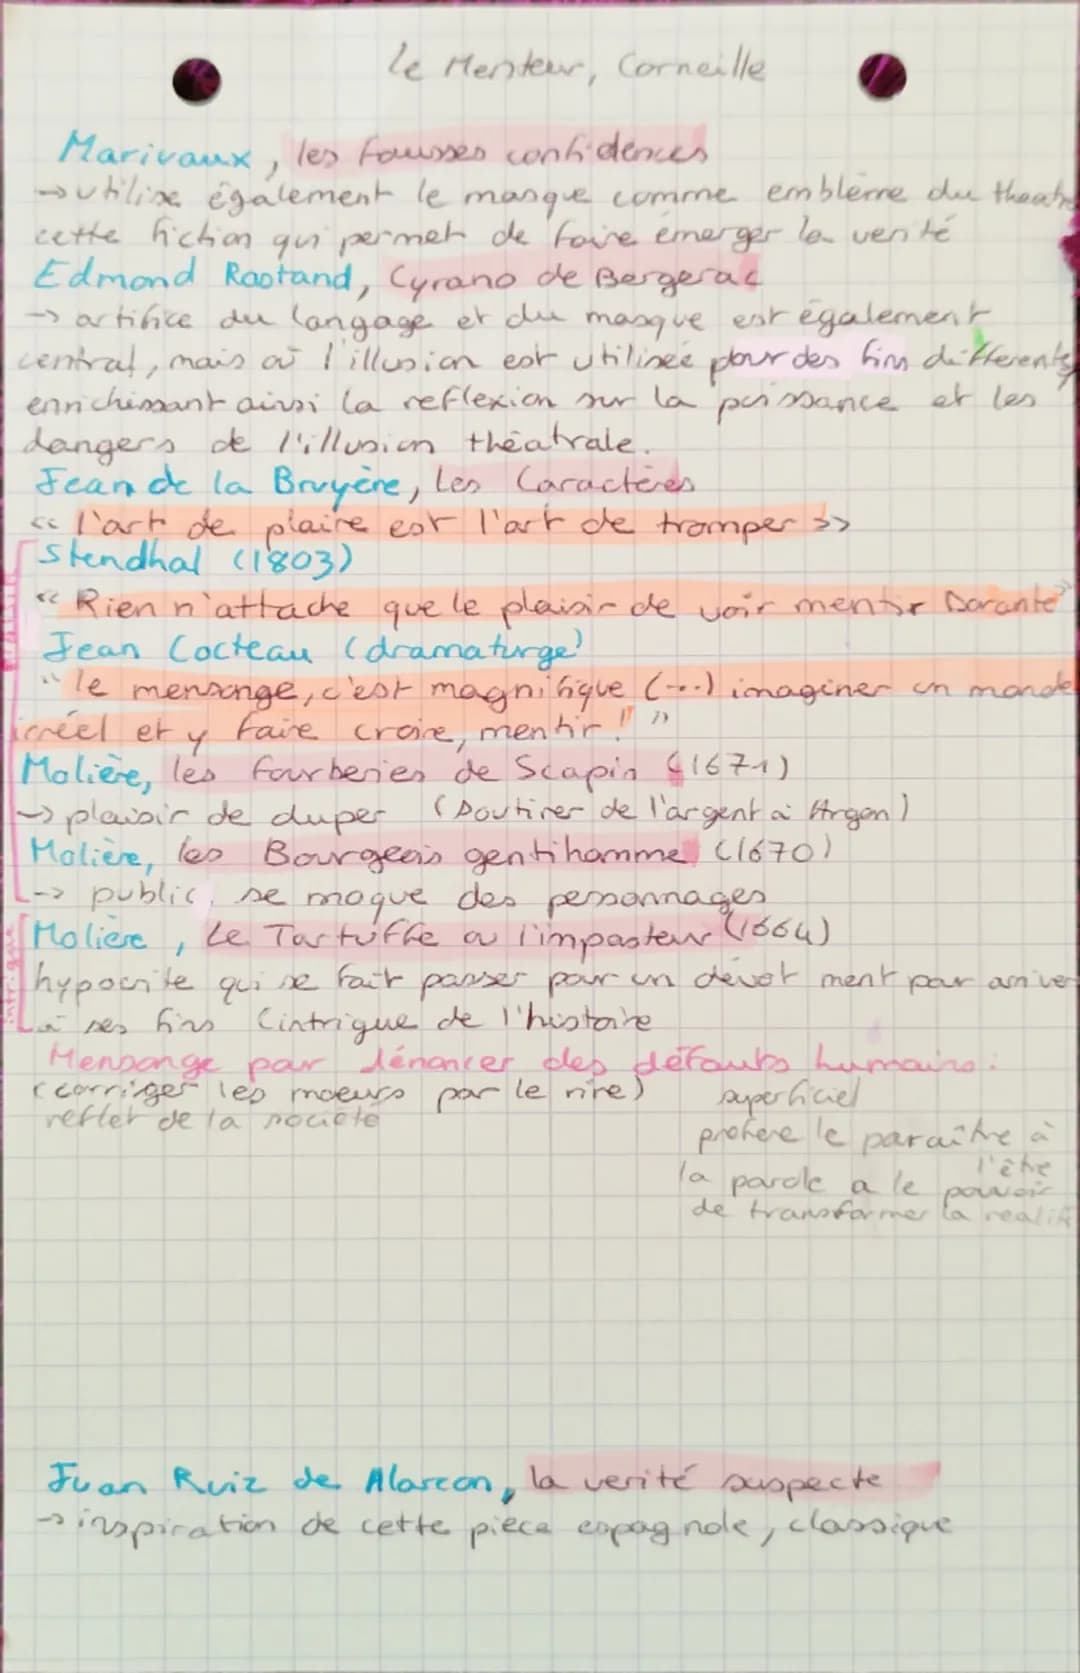 Le Menteur, Corneille
Marivaux, les fausses confidences
→ utilise également le masque comme emblème du theatre
cette fiction qui permet de faire émerger la verité
Edmond Rostand, Cyrano de Bergerac
→ artifice du langage et du masque est également
central, mais où l'illusion est utilisée pour des fins différentes,
enrichissant ainsi la reflexion sur la puissance et les
dangers de l'illusion théatrale.
Jean de la Bruyère, Les Caractères
<< l'art de plaire est l'art de tromper >>
Stendhal (1803)
"Rien n'attache que le plaisir de voir mentir Dorante"
Jean Cocteau (dramaturge)
"le mensonge, c'est magnifique (...) imaginer un monde
irréel et y faire croire, mentir!"
Molière, les fourberies de Scapin (1671)
→ plaisir de duper (Soutirer de l'argent à Argon)
Molière, les Bourgeois gentihomme (1670)
→ public, se moque des personnages
intrigue
Molière, Le Tartuffe ou l'imposteur (1664)
hypocrite qui se fait passer pour un dévot ment pour arriver
à ses fins (intrigue de l'histoire
Mensonge par dénoncer des défauts humains:
(corriger les moeurs par le rire)
superficiel
reflet de la société
préfère le paraître à
l'être
la parole a le pouvoir
de transformer la realité
Juan Ruiz de Alarcon, la verité suspecte
→ inspiration de cette pièce espagnole, classique